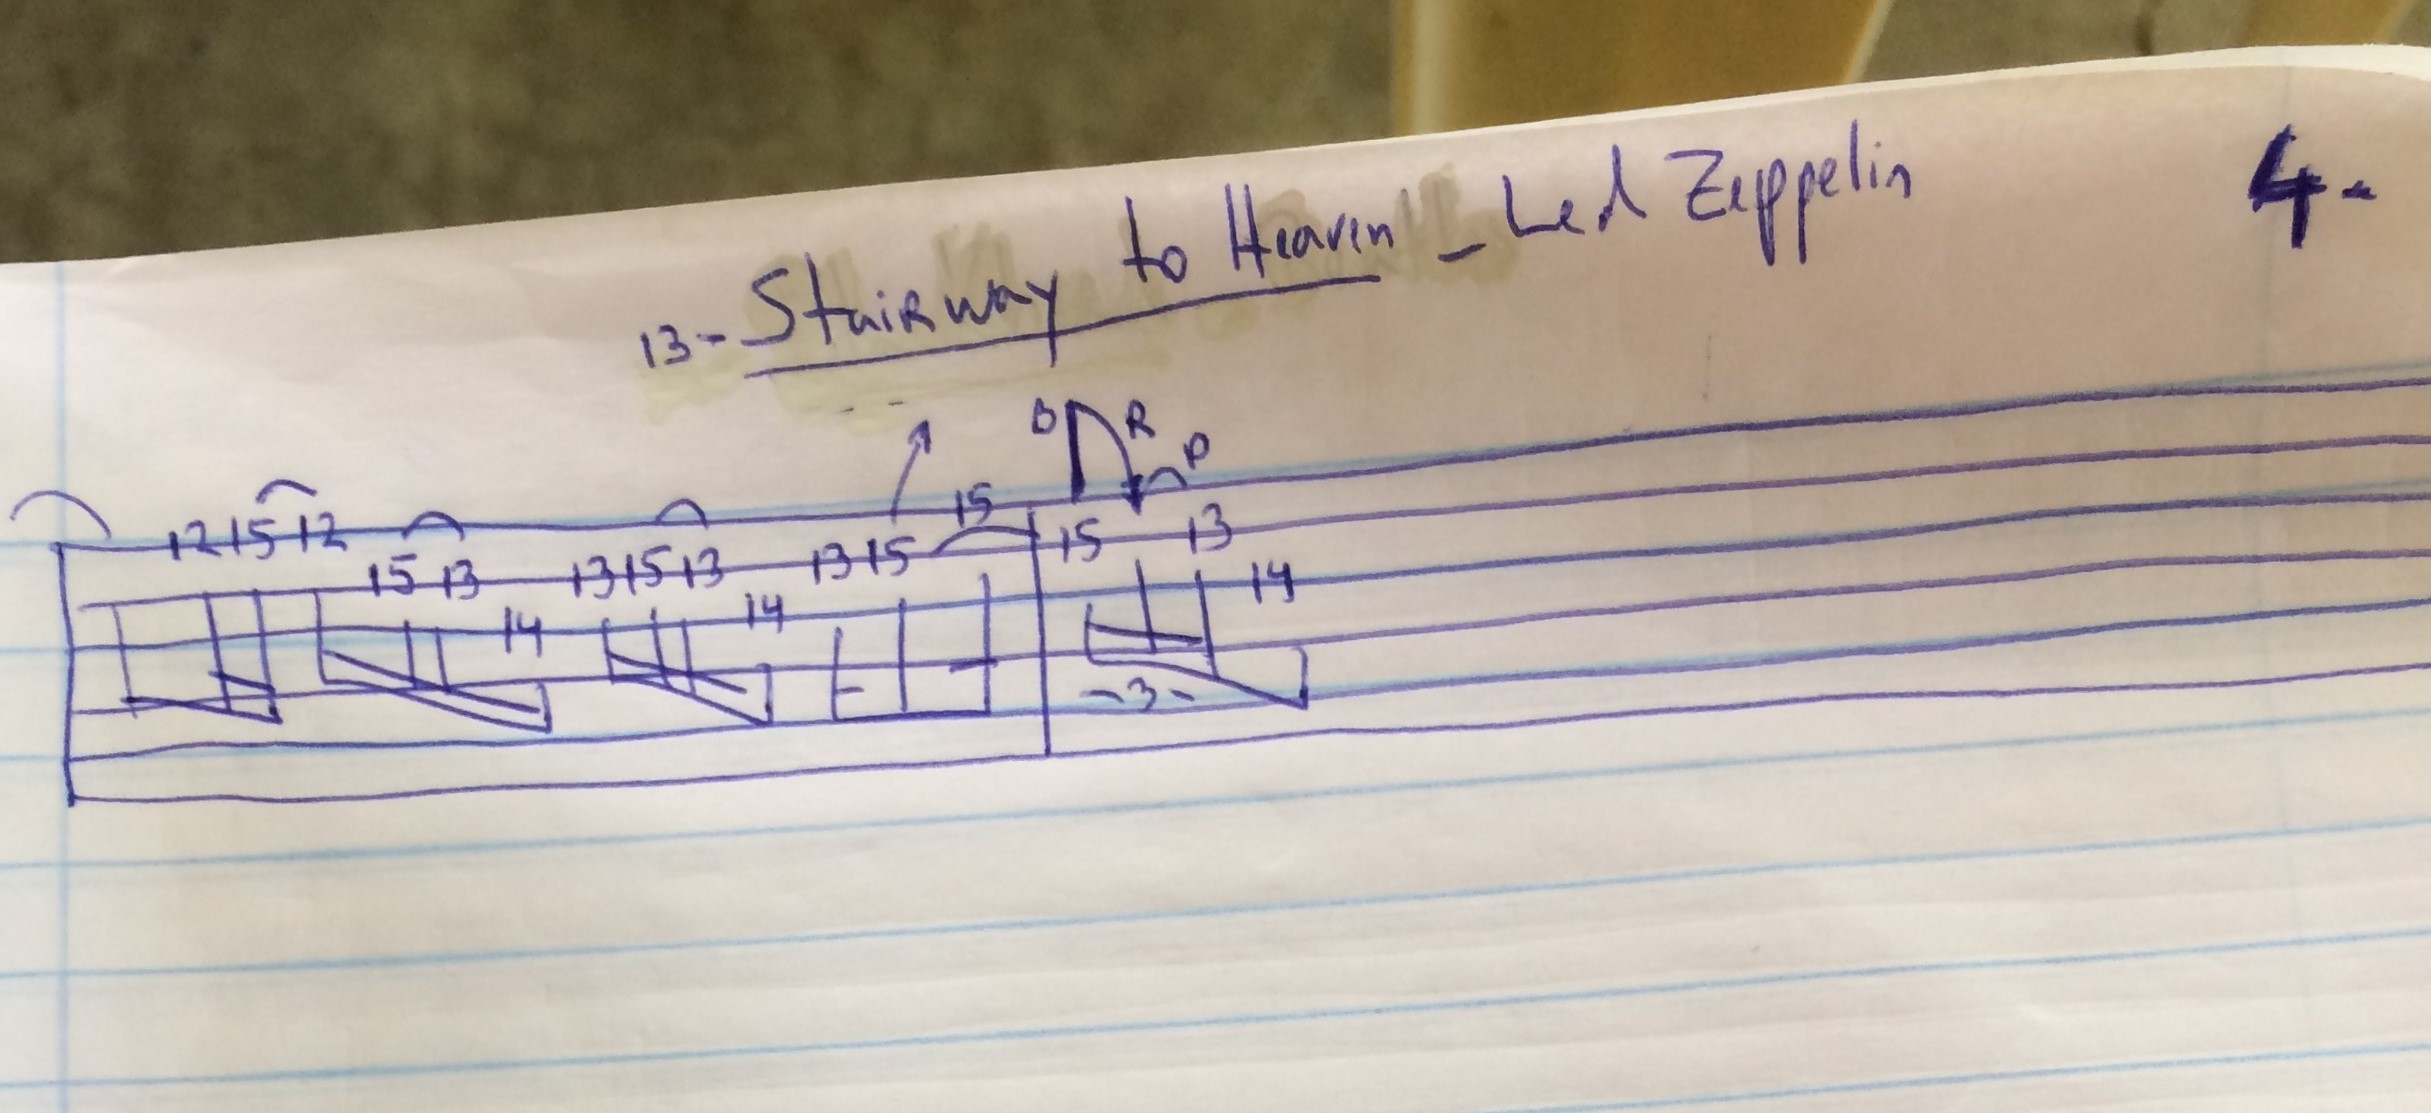 13- Stairway to Heaven - Led Zeppelin 4-
B R P
12 15 12 15
15 13 13 15 13 13 15 15 13
14 14 14
-3-